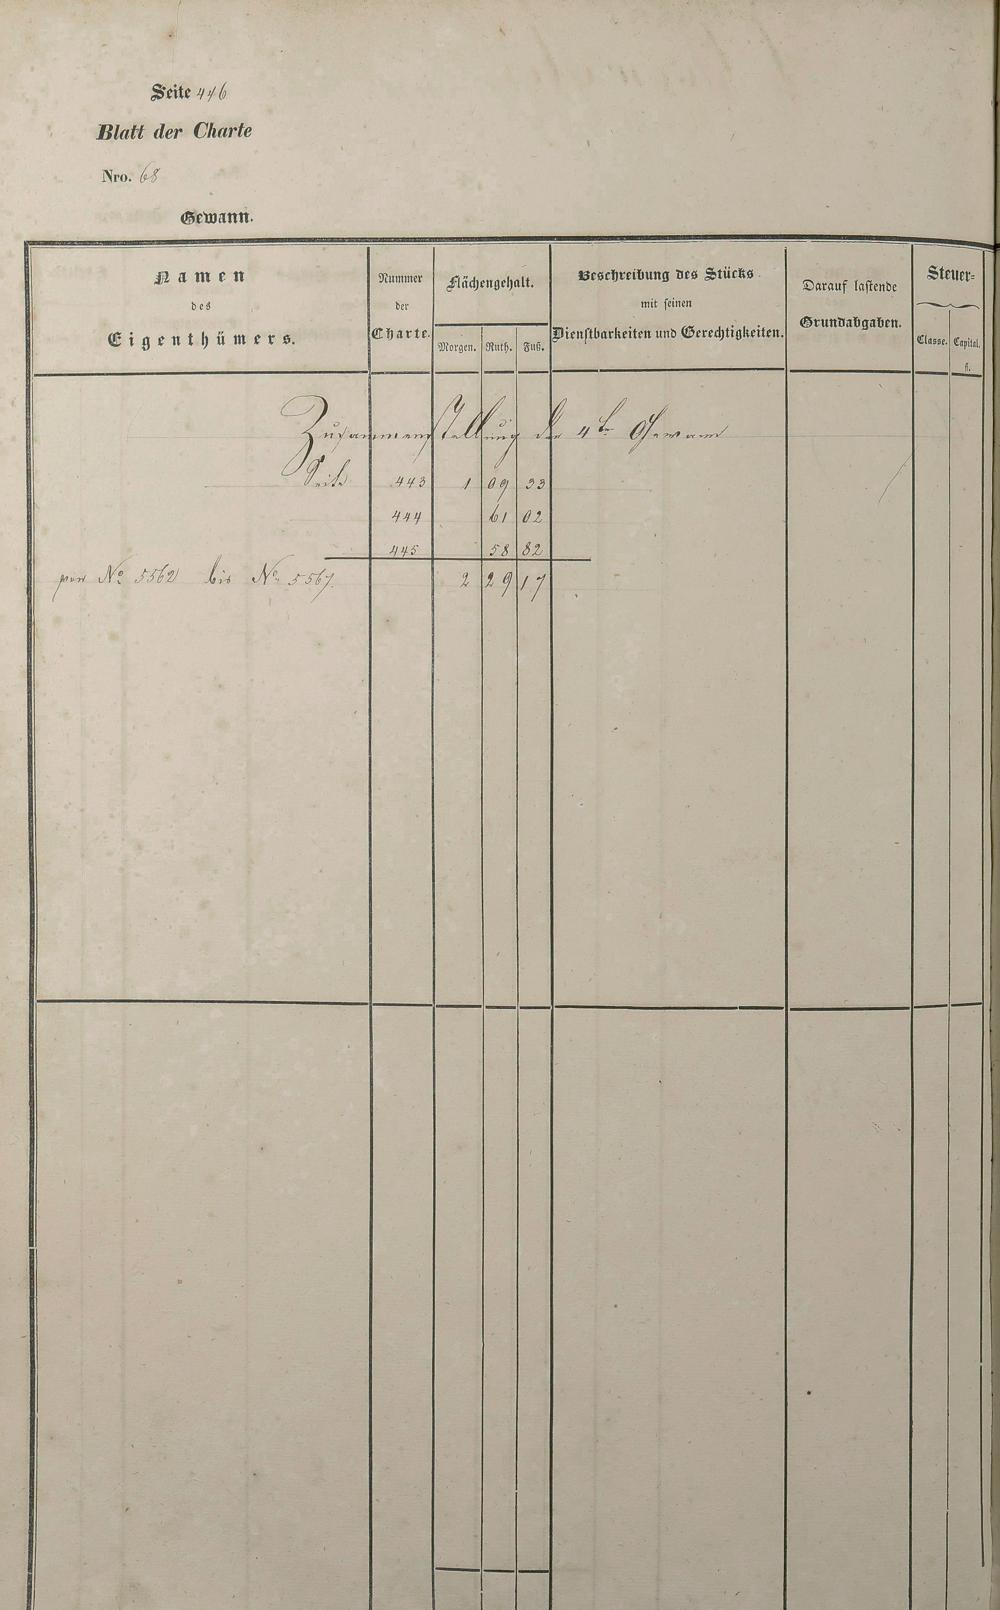 Seite 446
Blatt der Charte
Nro. 68
Gewann.
Namen
des
Eigenthümers.
Nummer
der
Charte.
Flächengehalt.
Morgen. Ruth. Fuß.
Beschreibung des Stücks
mit seinen
Dienstbarkeiten und Gerechtigkeiten.
Darauf lastende
Grundabgaben.
Steuer=
Classe. Capital.
fl.
Zusammenstellung der 4te Gewann
Seite 443 1 09 33
444 61 02
445 58 82
von No. 5562 bis No. 5567. 2 29 17